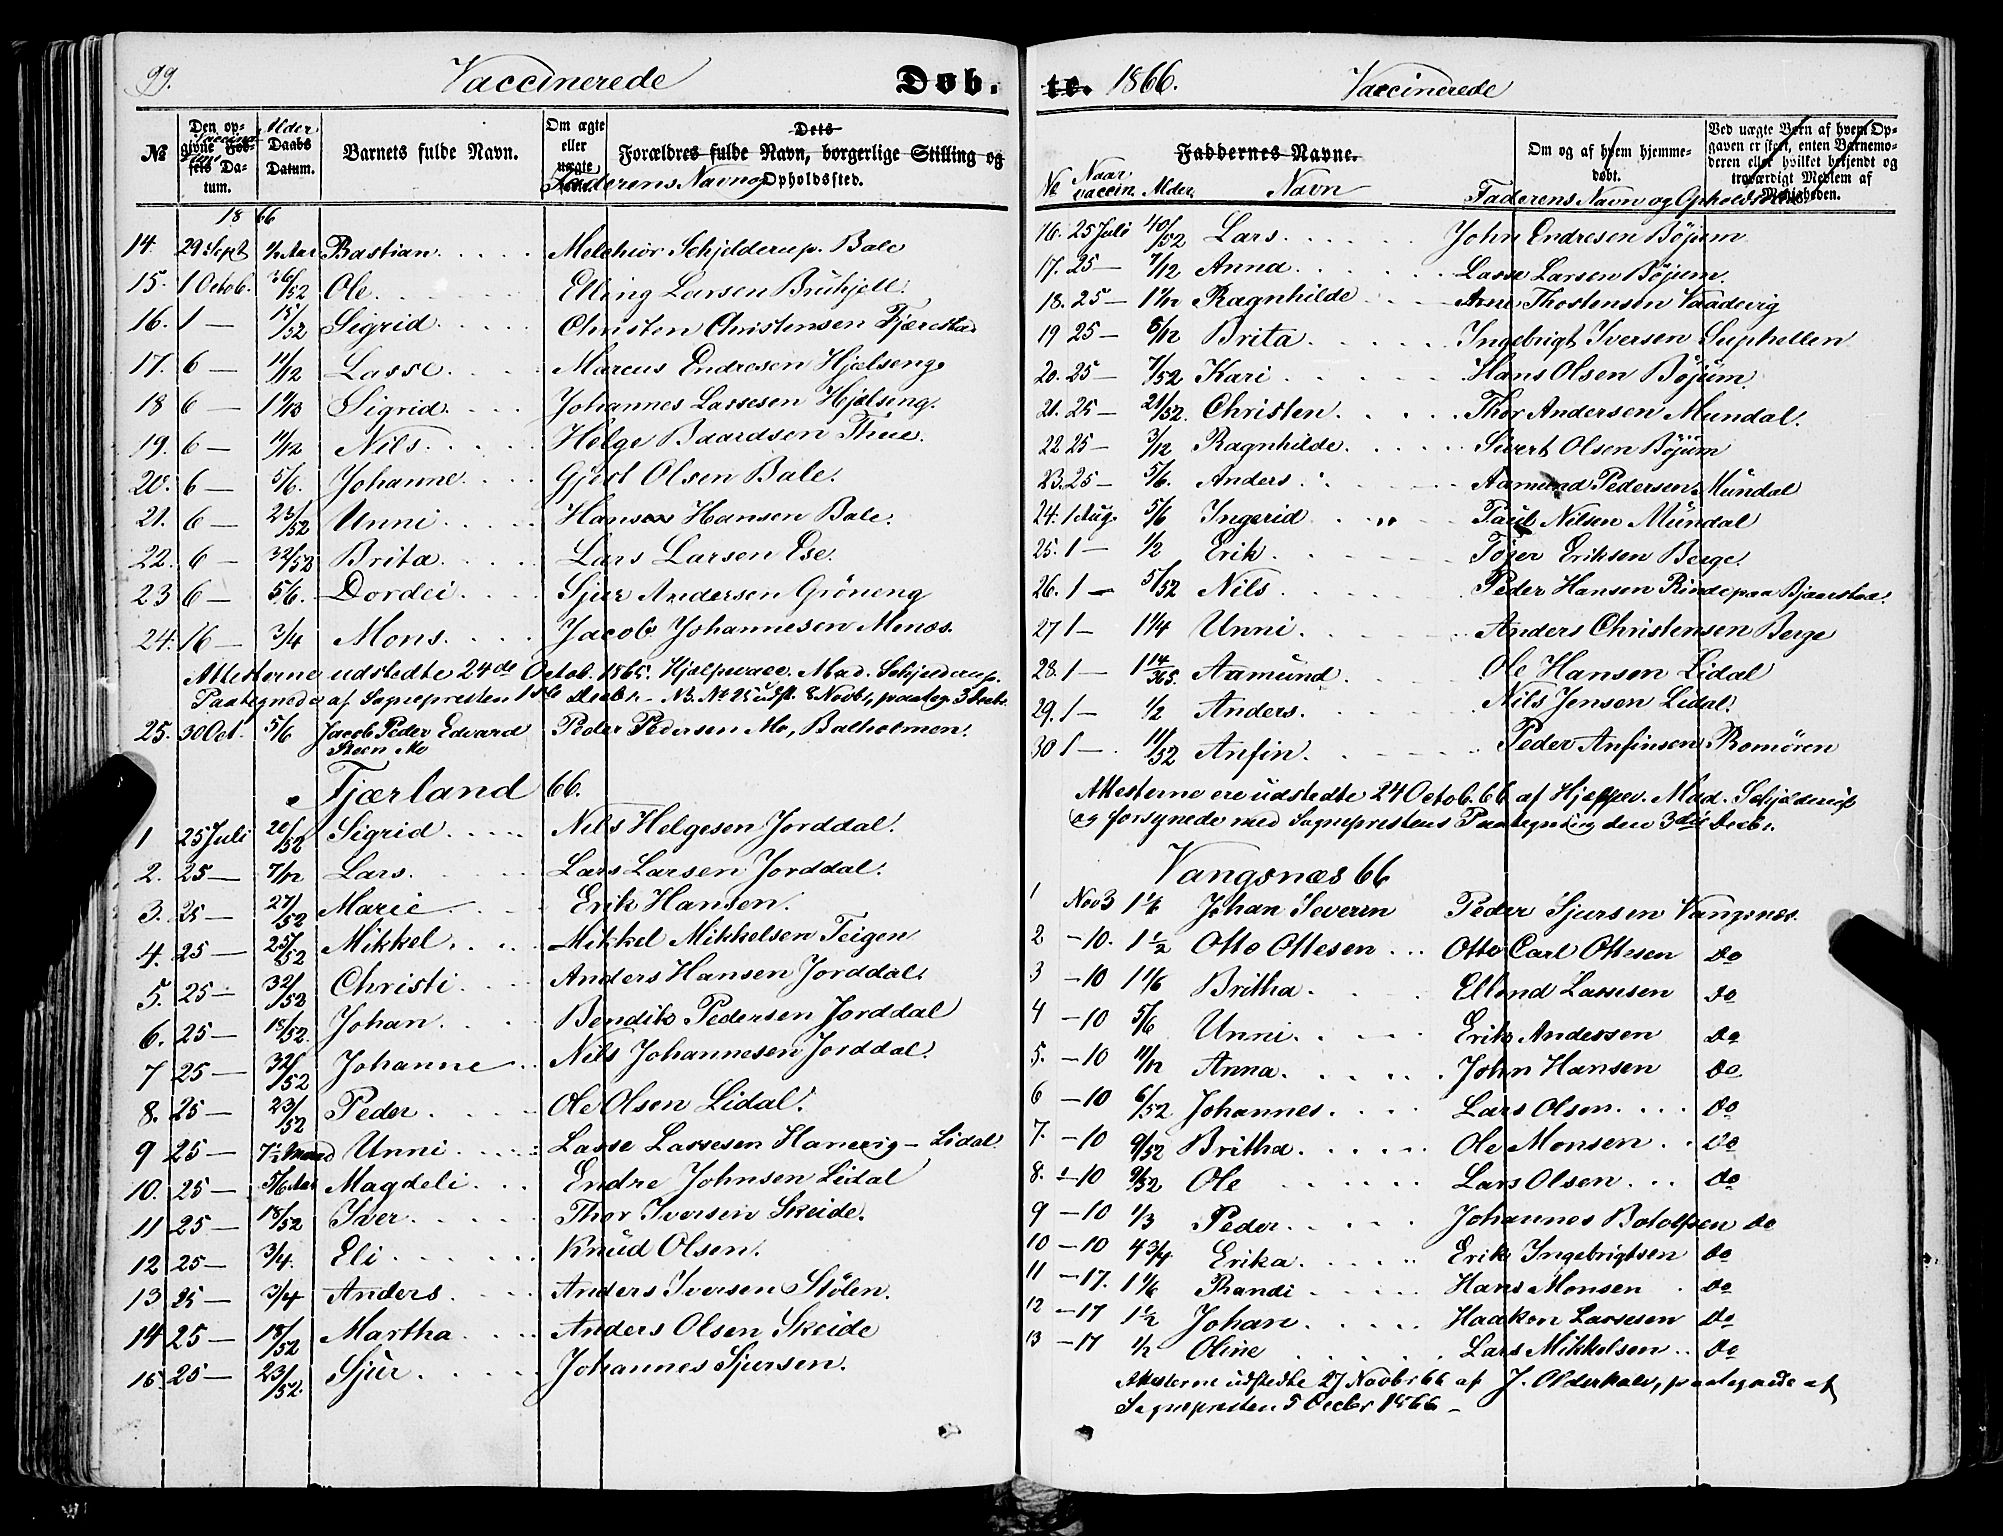 99. Vaccinerede Døb-
№ Den opgivne Fødsels Datum. Vaccina- Alder. Daabs Datum. Barnets fulde Navn. Om ægte eller uægte Forældres fulde Navn, borgerlige Stilling og Opholdssted. Dets Faderens Navn og
18 66
14. 29 Sept ½ Aar Bastian. Melchior Schjelderup. Bale
15. 1 Octob. 36/52 Ole. Elling Larsen
16. 1 — 15/52 Sigrid. Christen Christensen Fjærestad
17. 6 — 11/12 Lasse. Marcus Endresen Hjelseng.
18 6 — Sigrid. Johannes Lassesen Hjelseng.
19. 6 — 11/12 Nils. Helge Baardsen Thue.
20. 6 — 5/6. Johanne. Gjert Olsen Bale.
21. 6 — 23/52 Unni. Hans Hansen Bale.
22. 6 — 32/52 Brita. Lars Larsen Ese.
23 6 — 5/6. Dordei. Sjur Andersen Gröneng
24. 16 — 3/4 Mons. Jacob Johannesen Menes.
Attesterne udstedte 24de Octob. 1866. Hjælpevacc. Mad. Schjelderup.
Paategnede af Sognepresten 1ste Decbr. - NB. No 25 udst. 8 Novbr, paateg. 3 Decbr.
25. 30 Oct. 5/6 Jacob Peder Edvard Peder Pedersen Mo, Balholmen.
Steen Mo
Fjærland 66.
1 25 Juli 20/52 Sigrid. Nils Helgesen Jorddal.
2. 25 — 7/12 Lars. Lars Larsen Jorddal.
3. 25 — 27/52 Marie. Erik Hansen.
4. 25 — 25/52 Mikkel. Mikkel Mikkelsen Teigen
5. 25 — 32/52 Christi. Anders Hansen Jorddal.
6. 25 — 18/52. Johan. Bendik Pedersen Jorddal
7 25 — 32/52 Johanne. Nils Johannesen Jorddal.
8. 25 — 23/52 Peder. Ole Olsen Lidal.
9 25 — 7½ Maaned Unni. Lasse Lassesen Hamevig — Lidal
10. 25 — 5/6 Aar Magdeli. Endre Johnsen Lidal
11 25 — 18/52 Iver. Thor Iversen Skeide.
12 25 — 3/4. Eli. Knud Olsen.
13 25 — 3/4 Anders. Anders Iversen Stölen.
14 25 — 18/52 Martha. Anders Olsen Skeide
15. 25 — 23/52. Sjur. Johannes Sjursen.
te. 1866. Vaccinerede
Faddernes Navne. Om og af hvem hjemmedøbt. Ved uægte Børn af hvem Opgaven er skeet, enten Barnemoderen eller hvilket bekjendt og troværdigt Medlem af Menigheden.
№ Naar vaccin. Alder. Navn Faderens Navn og Opholdssted
16. 25 Juli 40/52 Lars. John Endresen Böjum
17. 25 — 7/12 Anna. Lasse Larsen Böjum.
18. 25 — Ragnhilde Arne Thostensen Vaadevig
19 25 — 5/12 Brita. Ingebrigt Iversen Suphellen
20. 25 — 7/52 Kari. Hans Olsen Böjum.
21. 25 — 21/52. Christen. Thor Andersen Mundal.
22 25 — 3/12 Ragnhilde. Sivert Olsen Böjum
23. 25 — 5/6. Anders. Aamund Pedersen Mundal
24. 1 Aug. 5/6 Ingerid. Paul Nilsen Mundal
25. 1 — ½ Erik. Töger Eriksen Berge.
26. 1 — 5/52 Nils. Peder Hansen Rinde paa Bjaastad.
27 1 — 1¼ Unni. Anders Christensen Berge
28. 1 — 1 14/365. Aamund. Ole Hansen Lidal
29. 1 — ½ Anders. Nils Jensen Lidal.
30 1 — 11/52 Anfin. Peder Anfinsen Romören
Attesterne ere udstedte 24 Octob. 66 af Hjelpev. Mad. Schjelderup
og forsynede med Sogneprestens Paategning den 3die Decbr.
Vangsnæs 66
1 Nov 3 Johan Severin Peder Sjursen Vangsnæs.
2 — 10. 1½ Otto Ottesen Otto Carl Ottesen Do
3 — 10 1 1/6 Britha. Ellend Lassesen Do
4 — 10 5/6 Unni. Erik Andersen Do
5. — 10 11/12 Anna. John Hansen Do
6 — 10 6/52 Johannes. Lars Olsen. Do
7. — 10 9/52 Britha. Ole Monsen. Do
8. — 10 9/52 Ole. Lars Olsen. Do
9 — 10 1/3 Peder. Johannes Botolfsen Do
10 — 10 4 3/4 Erika. Erik Ingebrigtsen Do
11 — 17. 1 1/6 Randi. Hans Monsen. Do
12 — 17 1½ Johan. Haakon Lassesen Do
13 — 17 ½ Oline. Lars Mikkelsen. Do
Attesterne udstedte 27 Novbr 66 af J. Olderhals, paategnede af
Sognepresten 5 Decbr 1866. —